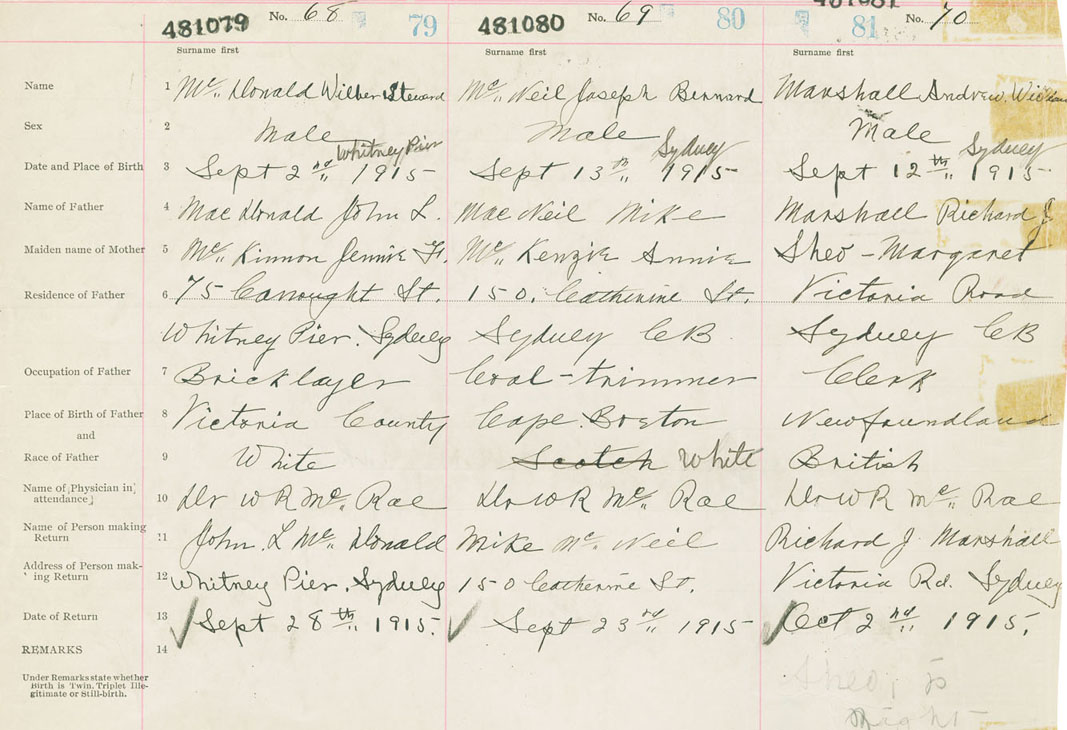 481079 No. 68 79 481080 No. 69 80 481081 81 No. 70
Surname first Surname first Surname first
Name 1 Mc,, Donald Wilber Steward Mc,, Neil Joseph Bernard Marshall Andrew
Sex 2 Male Male Male
Whitney Pier Sydney Sydney
Date and Place of Birth 3 Sept 2nd,, 1915 Sept 13th,, 1915 Sept 12th,, 1915.
Name of Father 4 Mac Donald John L. Mac Neil Mike Marshall Richard J.
Maiden name of Mother 5 Mc,, Kinnon Jennie F. Mc,, Kenzie Annie Sheo - Margaret
Residence of Father 6 75 Connought St. 150, Catherine St. Victoria Road
Whitney Pier. Sydney Sydney CB. Sydney CB
Occupation of Father 7 Bricklayer Coal-trimmer Clerk
Place of Birth of Father 8 Victoria County Cape. Breton Newfoundland
and
Race of Father 9 White Scotch White British
Name of [Physician in
attendance] 10 Dr W R Mc,, Rae Dr W R Mc,, Rae Dr W R Mc,, Rae
Name of Person making
Return 11 John. L Mc,, Donald Mike Mc. Neil Richard J. Marshall
Address of Person mak-
ing Return 12 Whitney Pier. Sydney 150 Catherine St. Victoria Rd. Sydney
Date of Return 13 Sept 28th,, 1915. Sept 23rd,, 1915 Oct 2nd,, 1915.
REMARKS 14
Under Remarks state whether
Birth is Twin, Triplet Ille-
gitimate or Still-birth.
Sheo, is
right